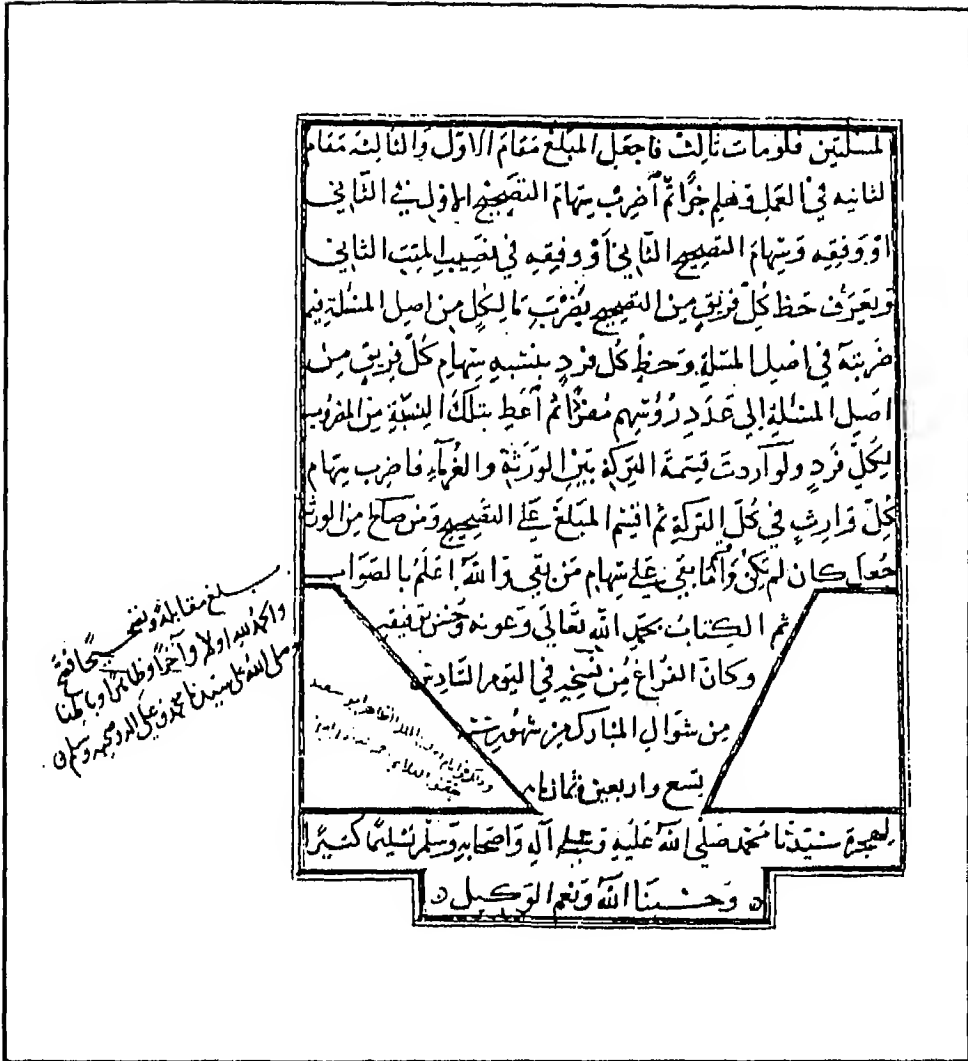 لمسئلتين فلومات ثالث فاجعل المبلغ مقام الاول والثالثه مقام
لثانيه في العمل وهلم جرا ثم اضرب سهام التصحيح الاول في الثاني
او وفيقه وسهام التصحيح الثاني او وفيقه في نصيب الميت الثاني
ويعرف حظ كل فريق من التصحيح بضرب ما لكل من اصل المسئلة فيما
ضربته في اصل المسئلة وحظ كل فرد بنسبة سهام كل فريق من
اصل المسئلة الى عدد رؤسهم مفردا ثم اعط بتلك النسبة من المضروب
لكل فرد ولو اردت قسمة التركة بين الورثة والغرماء فاضرب سهام
كل وارث في كل التركة ثم اقسم المبلغ على التصحيح ومن صالح من الورثة
جعل كان لم يكن واقسم ما بقي على سهام من بقي والله اعلم بالصواب
تم الكتاب بحمد الله تعالى وعونه وحسن توفيقه
وكان الفراغ من نسخه في اليوم السادس
من شوال المبارك من شهور سنة
تسع واربعين وثمانمائة
لهجرة سيدنا محمد صلى الله عليه وعلى آله واصحابه وسلم تسليما كثيرا
وحسبنا الله ونعم الوكيل
بلغ مقابلة وتصحيحا فصح
والحمد لله اولا وآخرا وظاهرا وباطنا
وصلى الله على سيدنا محمد وعلى آله وصحبه وسلم